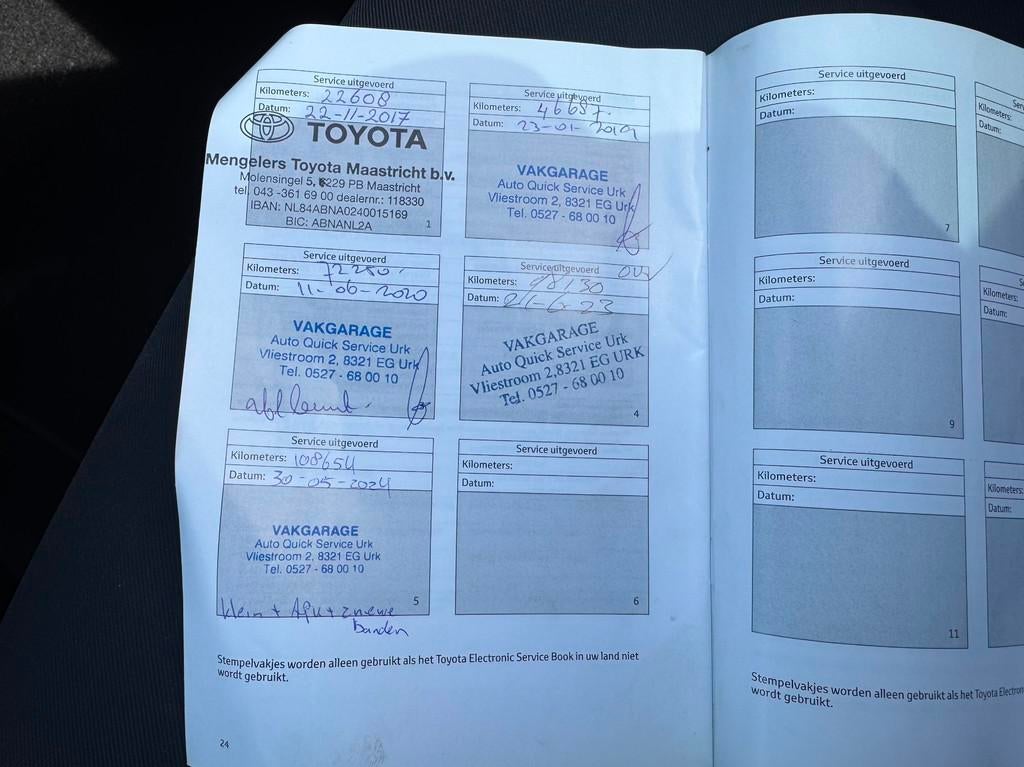 Service uitgevoerd
Kilometers: 22608
Datum: 22-11-2017
TOYOTA
Mengelers Toyota Maastricht b.v.
Molensingel 5, 6229 PB Maastricht
tel. 043 -361 69 00 dealernr.: 118330
IBAN: NL84ABNA0240015169
BIC: ABNANL2A
1
Service uitgevoerd
Kilometers: 46687.
Datum: 23-01-2019
VAKGARAGE
Auto Quick Service Urk
Vliestroom 2, 8321 EG Urk
Tel. 0527 - 68 00 10
Service uitgevoerd
Kilometers: 72250.
Datum: 11-06-2020
VAKGARAGE
Auto Quick Service Urk
Vliestroom 2, 8321 EG Urk
Tel. 0527 - 68 00 10
Service uitgevoerd
Kilometers: 98130
Datum: 21-6-23
VAKGARAGE
Auto Quick Service Urk
Vliestroom 2,8321 EG URK
Tel. 0527 - 68 00 10
4
Service uitgevoerd
Kilometers: 108654
Datum: 30-05-2024
VAKGARAGE
Auto Quick Service Urk
Vliestroom 2, 8321 EG Urk
Tel. 0527 - 68 00 10
5
klein + Apk + 2 nieuwe
banden
Service uitgevoerd
Kilometers:
Datum:
6
Stempelvakjes worden alleen gebruikt als het Toyota Electronic Service Book in uw land niet
wordt gebruikt.
24
Service uitgevoerd
Kilometers:
Datum:
7
Ser
Kilometers:
Datum:
Service uitgevoerd
Kilometers:
Datum:
9
S
Kilometers:
Datum:
Service uitgevoerd
Kilometers:
Datum:
11
Kilometers:
Datum:
Stempelvakjes worden alleen gebruikt als het Toyota Electron
wordt gebruikt.